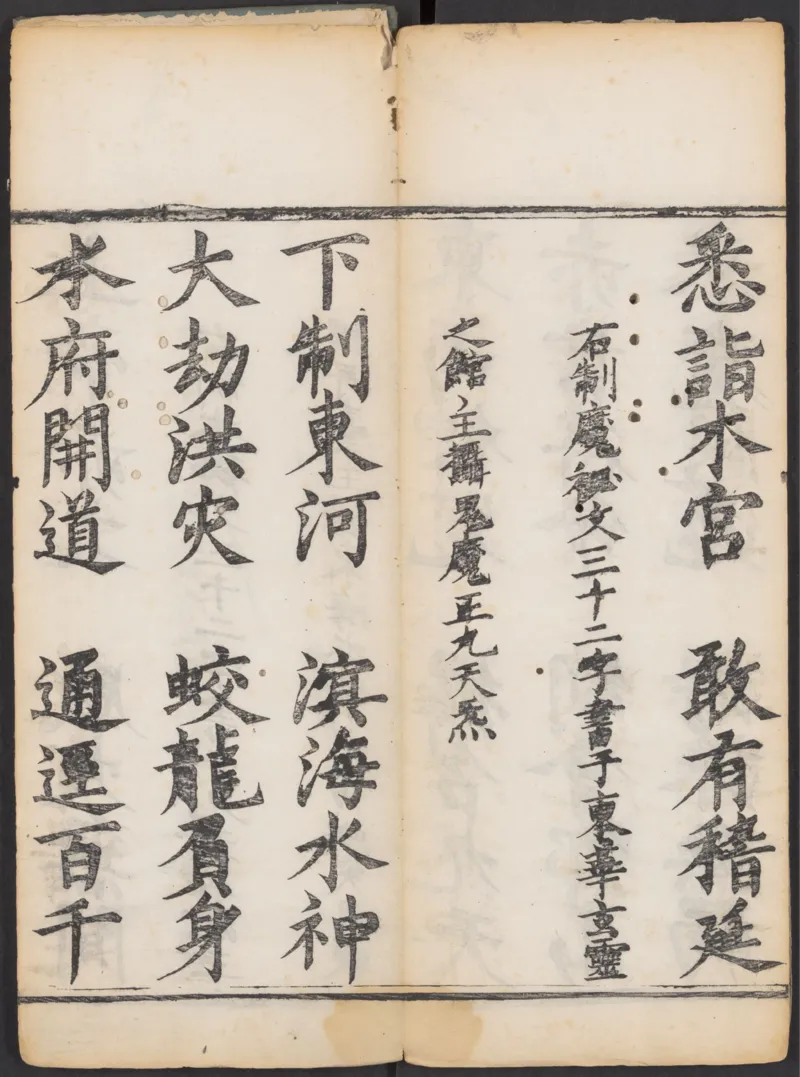 悉詣木宮　敢有稽延
右制魔祕文三十二字書于東華玄靈
之館主攝鬼魔正九天炁
下制東河　溟海水神
大劫洪灾　蛟龍負身
水府開道　通逕百千